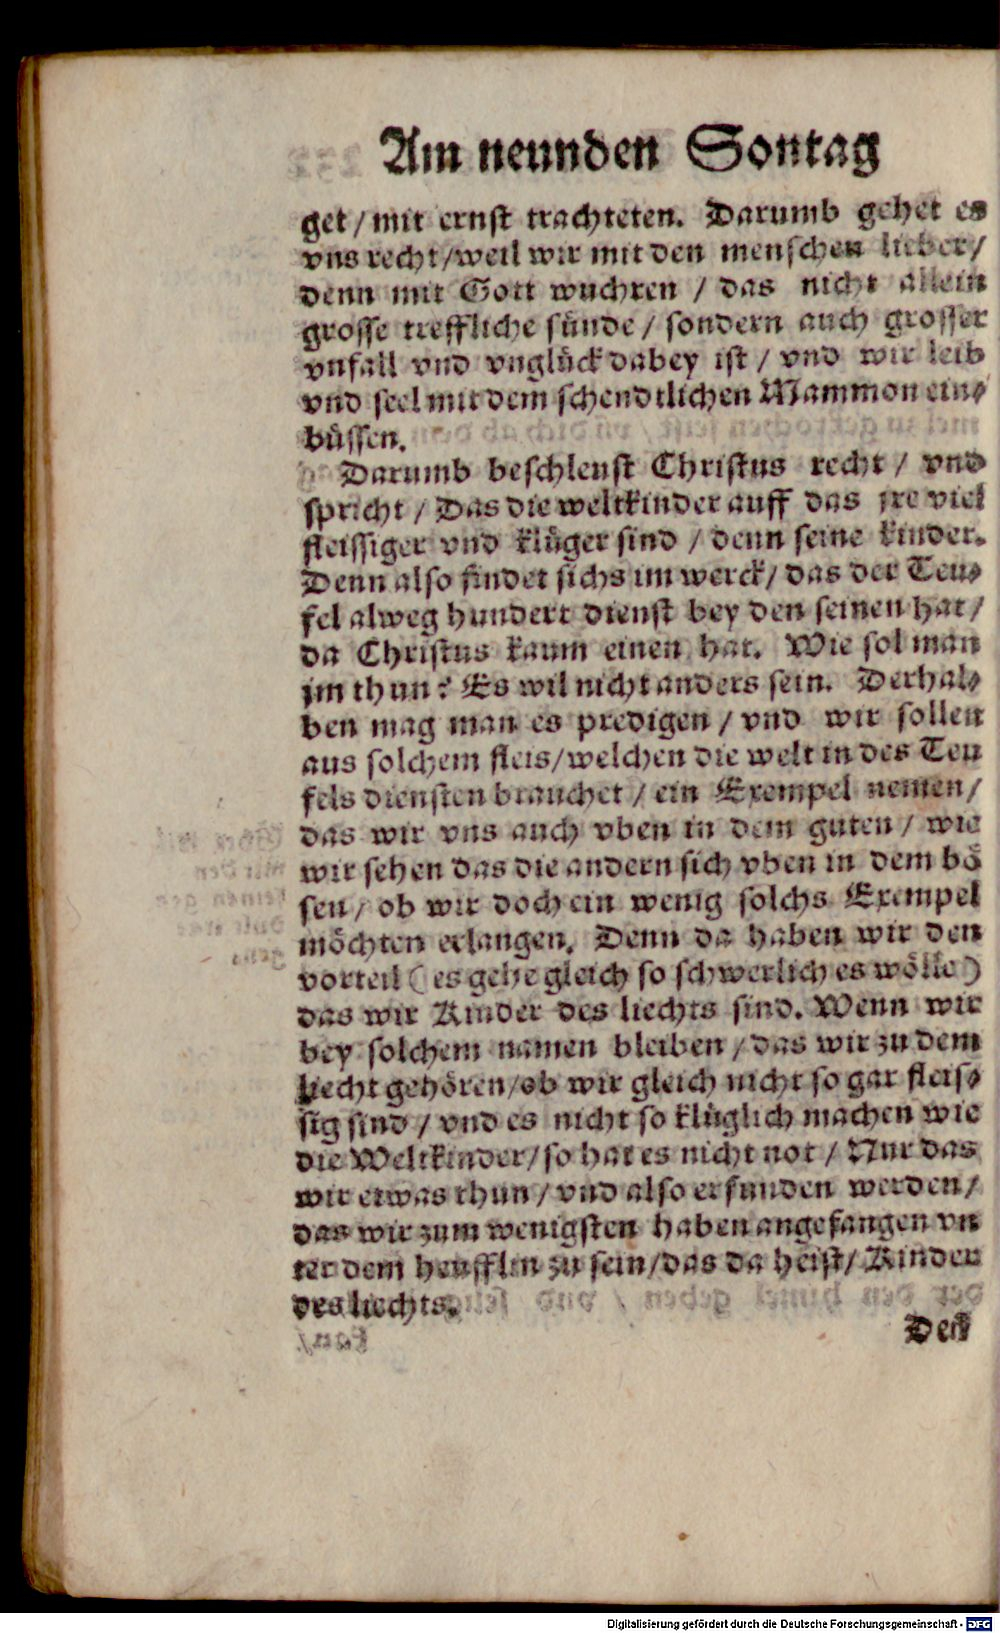 Am neunden Sontag
get / mit ernst trachteten. Darumb gehet es
vns recht / weil wir mit den menschen lieber /
denn mit Gott wuchren / das nicht allein
grosse treffliche sünde / sondern auch grosser
vnfall vnd vnglück dabey ist / vnd wir leib
vnd seel mit dem schendtlichen Mammon ein⸗
büssen.
Darumb beschleust Christus recht / vnd
spricht / Das die weltkinder auff das jre viel
fleissiger vnd klüger sind / denn seine kinder.
Denn also findet sichs im werck / das der Teu⸗
fel alweg hundert dienst bey den seinen hat /
da Christus kaum einen hat. Wie sol man
jm thun? Es wil nicht anders sein. Derhal⸗
ben mag man es predigen / vnd wir sollen
aus solchem fleis / welchen die welt in des Teu
fels diensten brauchet / ein Exempel nemen /
das wir vns auch vben in dem guten / wie
wir sehen das die andern sich vben in dem bö
sen / ob wir doch ein wenig solchs Exempel
möchten erlangen. Denn da haben wir den
vorteil (es gehe gleich so schwerlich es wölle)
das wir Kinder des liechts sind. Wenn wir
bey solchem namen bleiben / das wir zu dem
liecht gehören / ob wir gleich nicht so gar fleis⸗
sig sind / vnd es nicht so klüglich machen wie
die Weltkinder / so hat es nicht not / Nur das
wir etwas thun / vnd also erfunden werden /
das wir zum wenigsten haben angefangen vn
ter dem heufflin zu sein / das da heist / Kinder
des liechts.
Digitalisierung gefördert durch die Deutsche Forschungsgemeinschaft - DFG